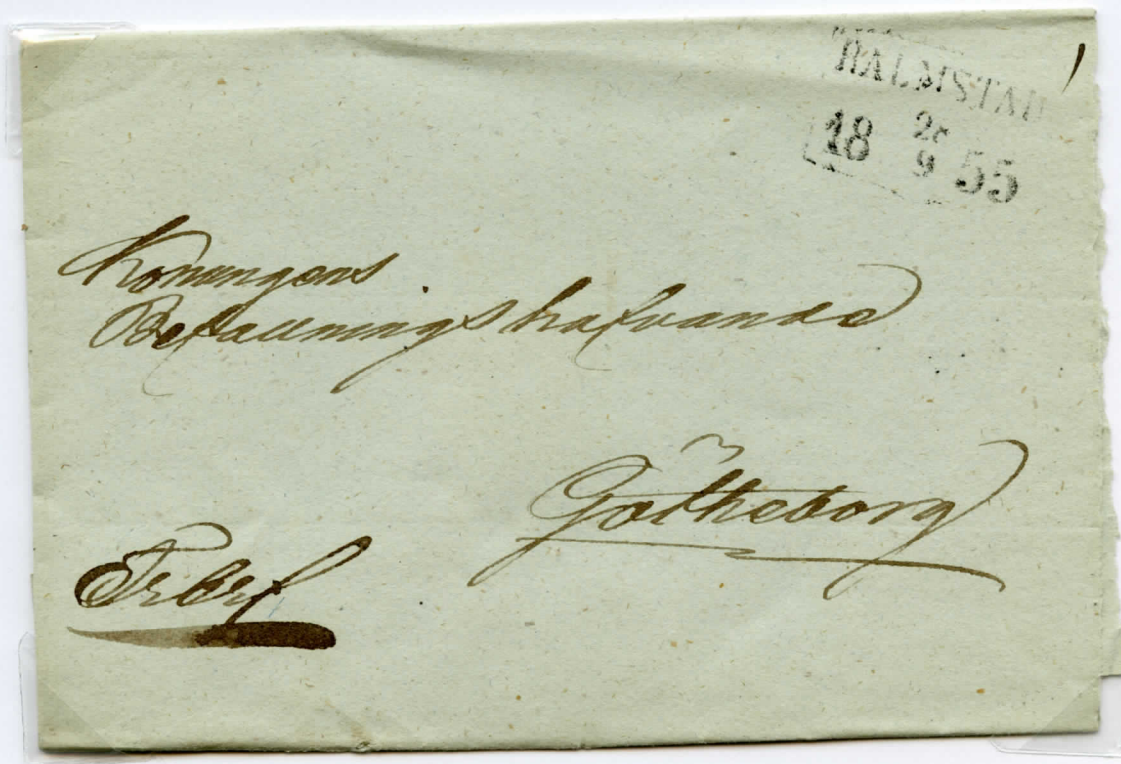 HALMSTAD
18 9 55
Konungens
Befallningshafvande
Götheborg
Fribref